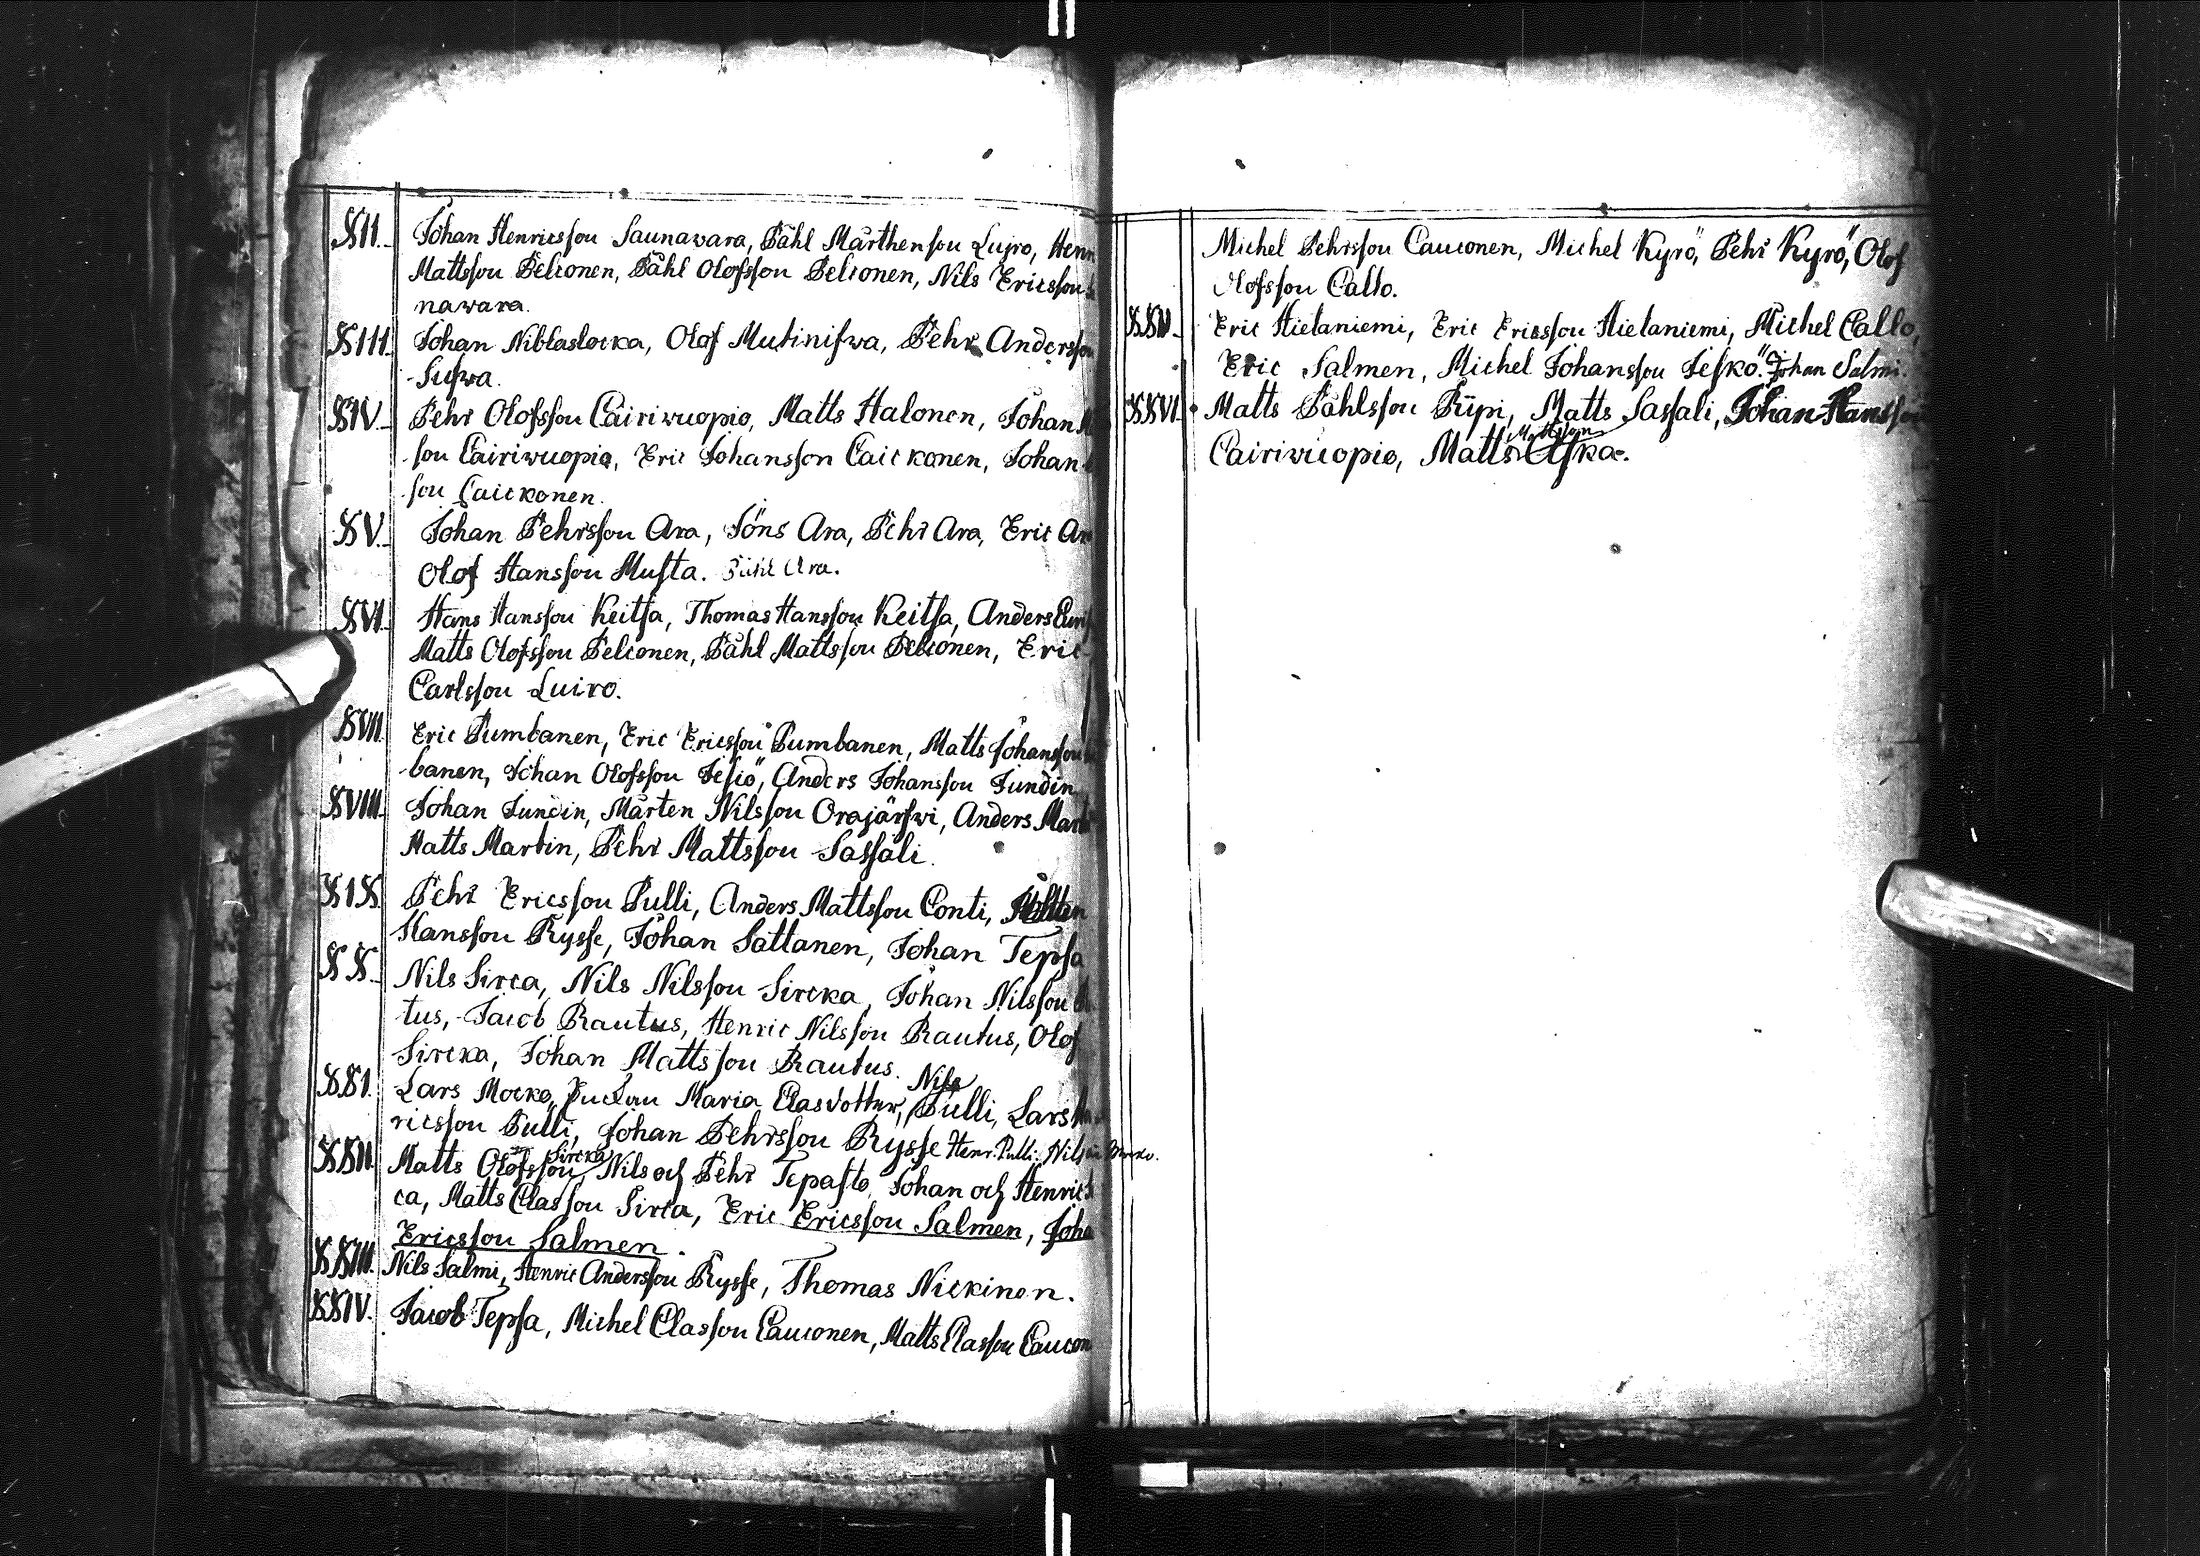 XII. Johan Henricsson Saunawara, Påhl Mårthensson Lujro, Henr
Mattsson Pelconen, Påhl Olofsson Pelconen, Nils Ericsson
nawara.
XIII. Johan Niblaslocka, Olof Mutiniswa, Pehr Andersson
Suswa.
XIV. Pehr Olofsson Cairiwuopio, Matts Halonen, Johan
son Cairiwuopio, Eric Johansson Caickonen, Johan
son Caickonen.
XV. Johan Pehrsson Ara, Jöns Ara, Pehr Ara, Eric Ar
Olof Hansson Musta. Påhl Ara.
XVI. Hans Hansson Keitsa, Thomas Hansson Keitsa, Anders
Matts Olofsson Pelconen, Påhl Mattsson Pelconen, Eric
Carlsson Luiro.
XVII. Eric Pumbanen, Eric Ericsson Pumbanen, Matts Johansson
banen, Johan Olofsson Jesiö, Anders Johansson Sundin
XVIII. Johan Sundin, Mårten Nilsson Orajärfwi, Anders Mart
Matts Martin, Pehr Mattsson Sassali.
XIX. Pehr Ericsson Pulli, Anders Mattsson Conti,
Hansson Rysse, Johan Sattanen, Johan Tepsa
XX. Nils Sirca, Nils Nilsson Sircka, Johan Nilsson
tus, Jacob Rautus, Henric Nilsson Rautus, Olof
Sircka, Johan Mattsson Rautus.
XXI. Lars Mocko, Maria Clasdotter, Nils Pulli, Lars
ricsson Pulli, Johan Pehrsson Rysse Henr. Pulli. Nils
XXII. Matts Olofsson Sircka, Nils och Pehr Tepasto, Johan och Henric
ca, Matts Classon Sirca, Eric Ericsson Salmen, Joha
Ericsson Salmen.
XXIII. Nils Salmi, Henric Andersson Rysse, Thomas Nickinen.
XXIV. Jacob Tepsa, Michel Classon Cauconen, Matts Classon Caucon
Michel Pehrsson Cauconen, Michel Kyrö, Pehr Kyrö, Olof
Olofsson Callo.
XXV. Eric Hietaniemi, Eric Ericsson Hietaniemi, Michel Callo,
Eric Salmen, Michel Johansson Jeskö. Johan Salmi.
XXVI. Matts Påhlsson Ripi, Matts Sassali, Johan Hansson
Cairiwuopio, Matts Mattsson Aska.